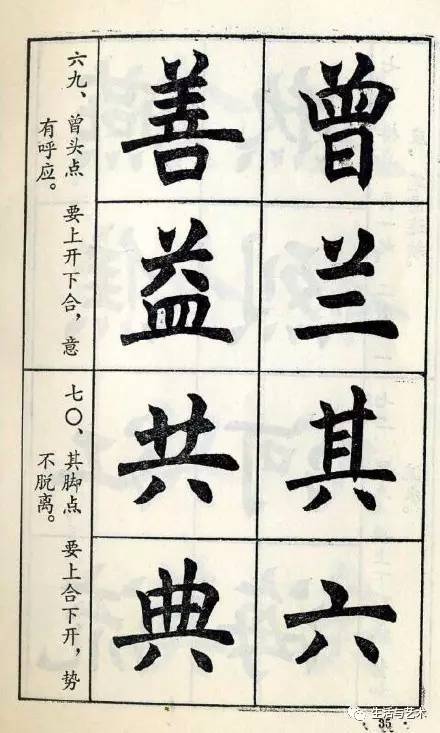 曾兰其六
善益共典
六九、曾头点 要上开下合，意
有呼应。
七〇、其脚点 要上合下开，势
不脱离。
35
生活与艺术